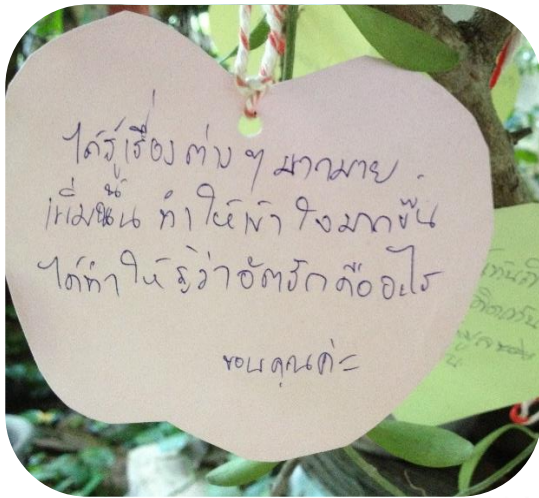 ได้รู้เรื่องต่าง ๆ มากมาย
เพิ่มขึ้น ทำให้เข้าใจมากขึ้น
ได้ทำให้รู้ว่าอัตรักคืออะไร
ขอบคุณค่ะ